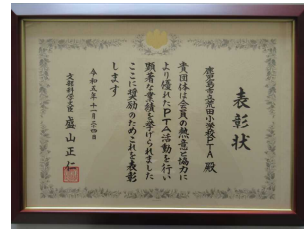 表彰状
鹿児島市立荒田小学校PTA 殿
貴団体は会員の熱意と協力に
より優れたPTA活動を行い
顕著な業績を挙げられました
ここに奨励のためこれを表彰
します
令和五年十一月二十四日
文部科学大臣 盛山正仁